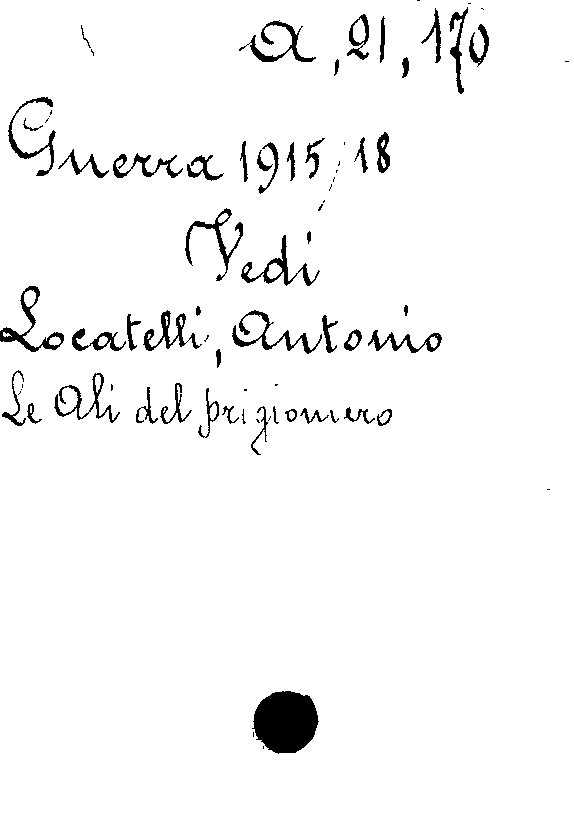 A, 21, 170
Guerra 1915/18
Vedi
Locatelli, Antonio
Le Ali del prigioniero